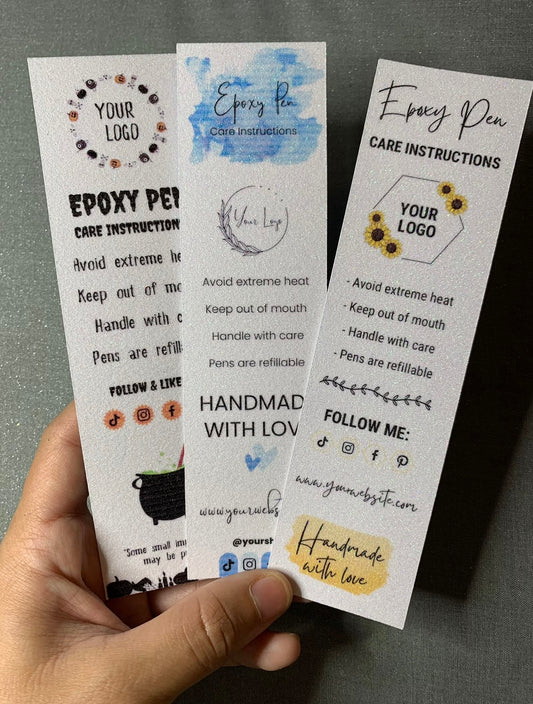 YOUR
LOGO
EPOXY PEN
CARE INSTRUCTION
Avoid extreme
Keep out of
Handle with
Pens are
FOLLOW & LIKE
"Some small
may be
Epoxy Pen
Care Instructions
Your Logo
Avoid extreme heat
Keep out of mouth
Handle with care
Pens are refillable
HANDMAD
WITH LOV
www.yourwebs
@yoursh
Epoxy Pen
CARE INSTRUCTIONS
YOUR
LOGO
- Avoid extreme heat
- Keep out of mouth
- Handle with care
- Pens are refillable
FOLLOW ME:
www.yourwebsite.com
Handmade
with love